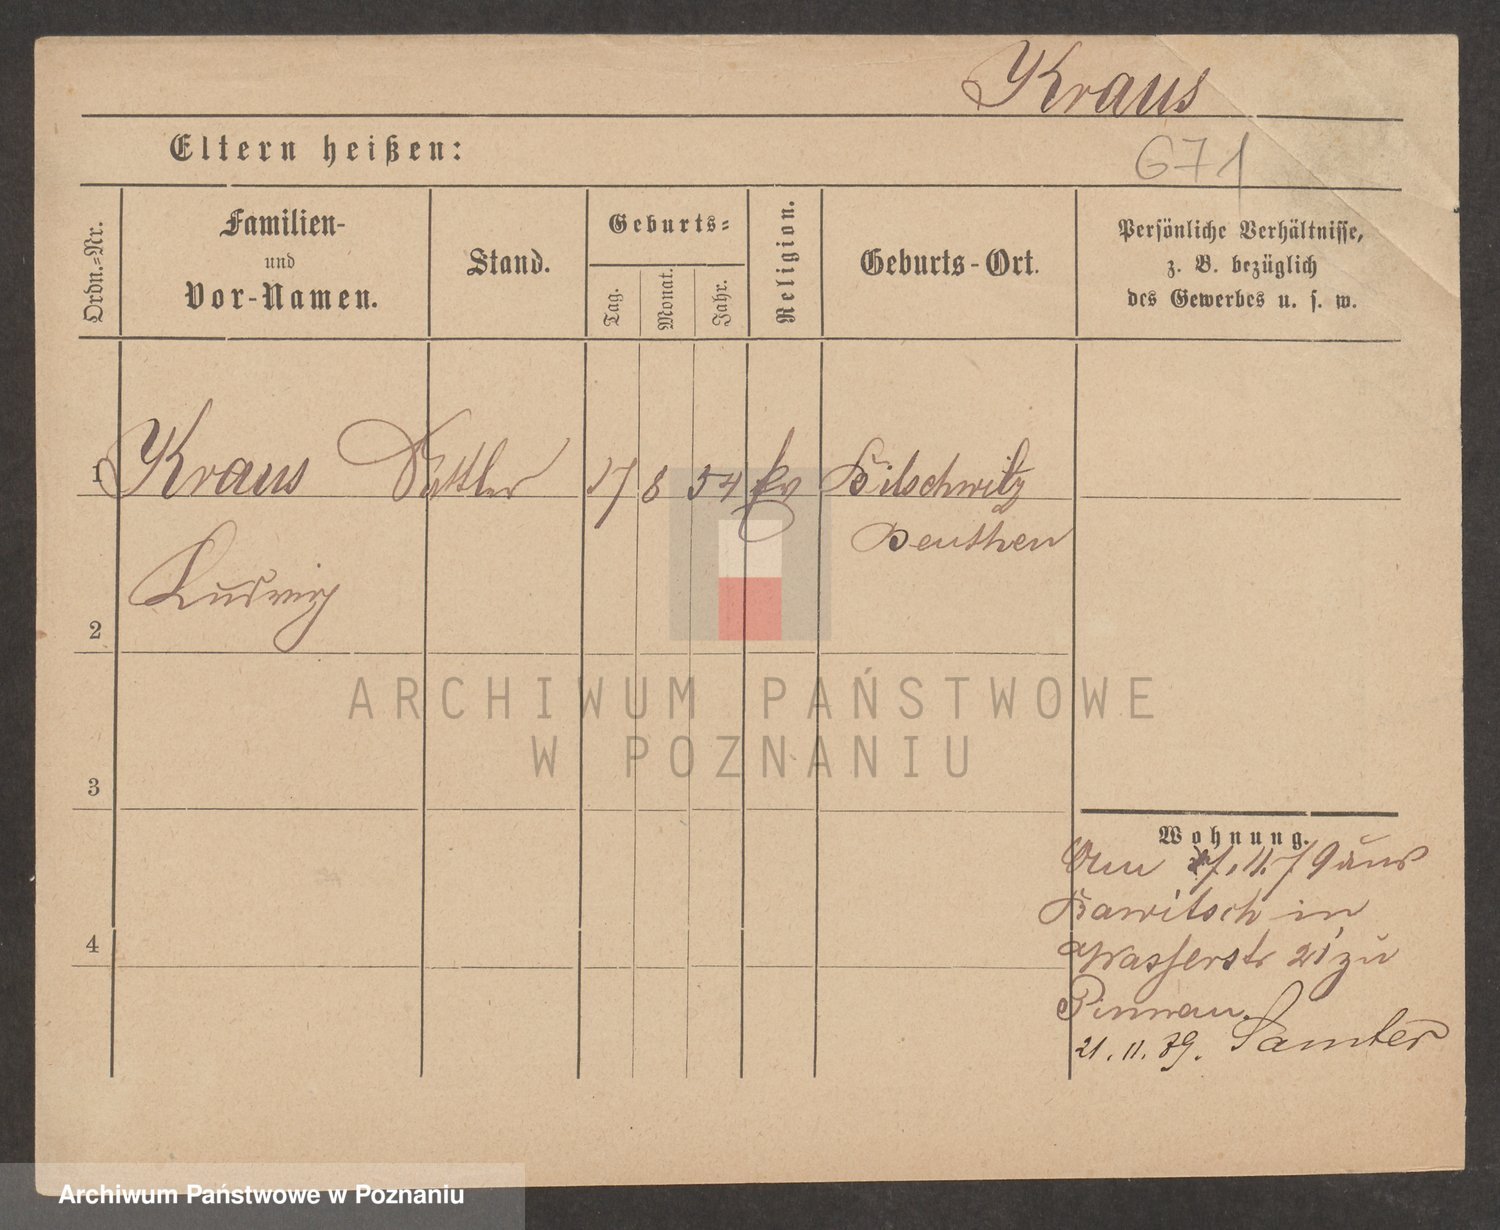 Kraus
Eltern heißen:
671
Ordn.-Nr.
Familien-
und
Vor-Namen.
Stand.
Geburts-
Tag.
Monat.
Jahr.
Religion.
Geburts-Ort.
Persönliche Verhältnisse,
z. B. bezüglich
des Gewerbes u. s. w.
1 Kraus Sattler 17 8 54 kv Bilschwitz
Beuthen
Ludwig
2
ARCHIWUM PAŃSTWOWE
W POZNANIU
3
Wohnung.
Am 7. 11. 79 aus
Rawitsch in
Wasserstr 21 zu
4
21. 11. 79. Samter
Archiwum Państwowe w Poznaniu